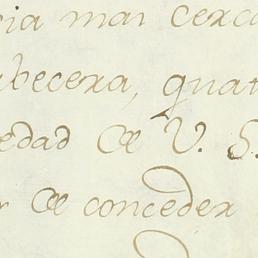 cia mas cerca
abecera, quat
edad de V. S.
r de conceder